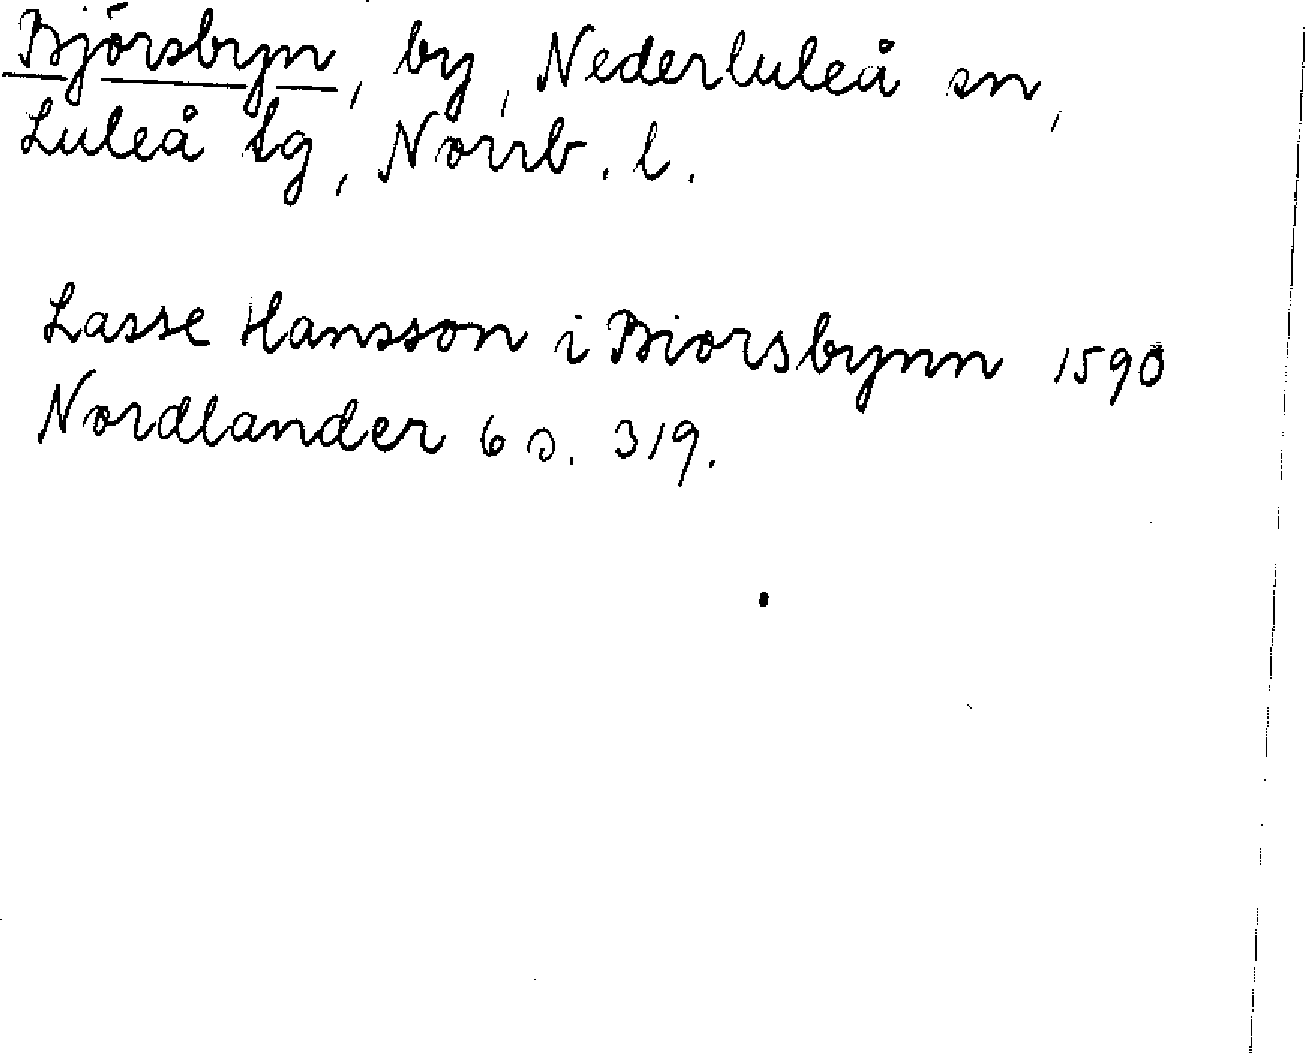 Björsbyn, by, Nederluleå sn,
Luleå tg, Norrb. l.
Lasse Hansson i Biorsbynn 1590
Nordlander 6 s. 319.